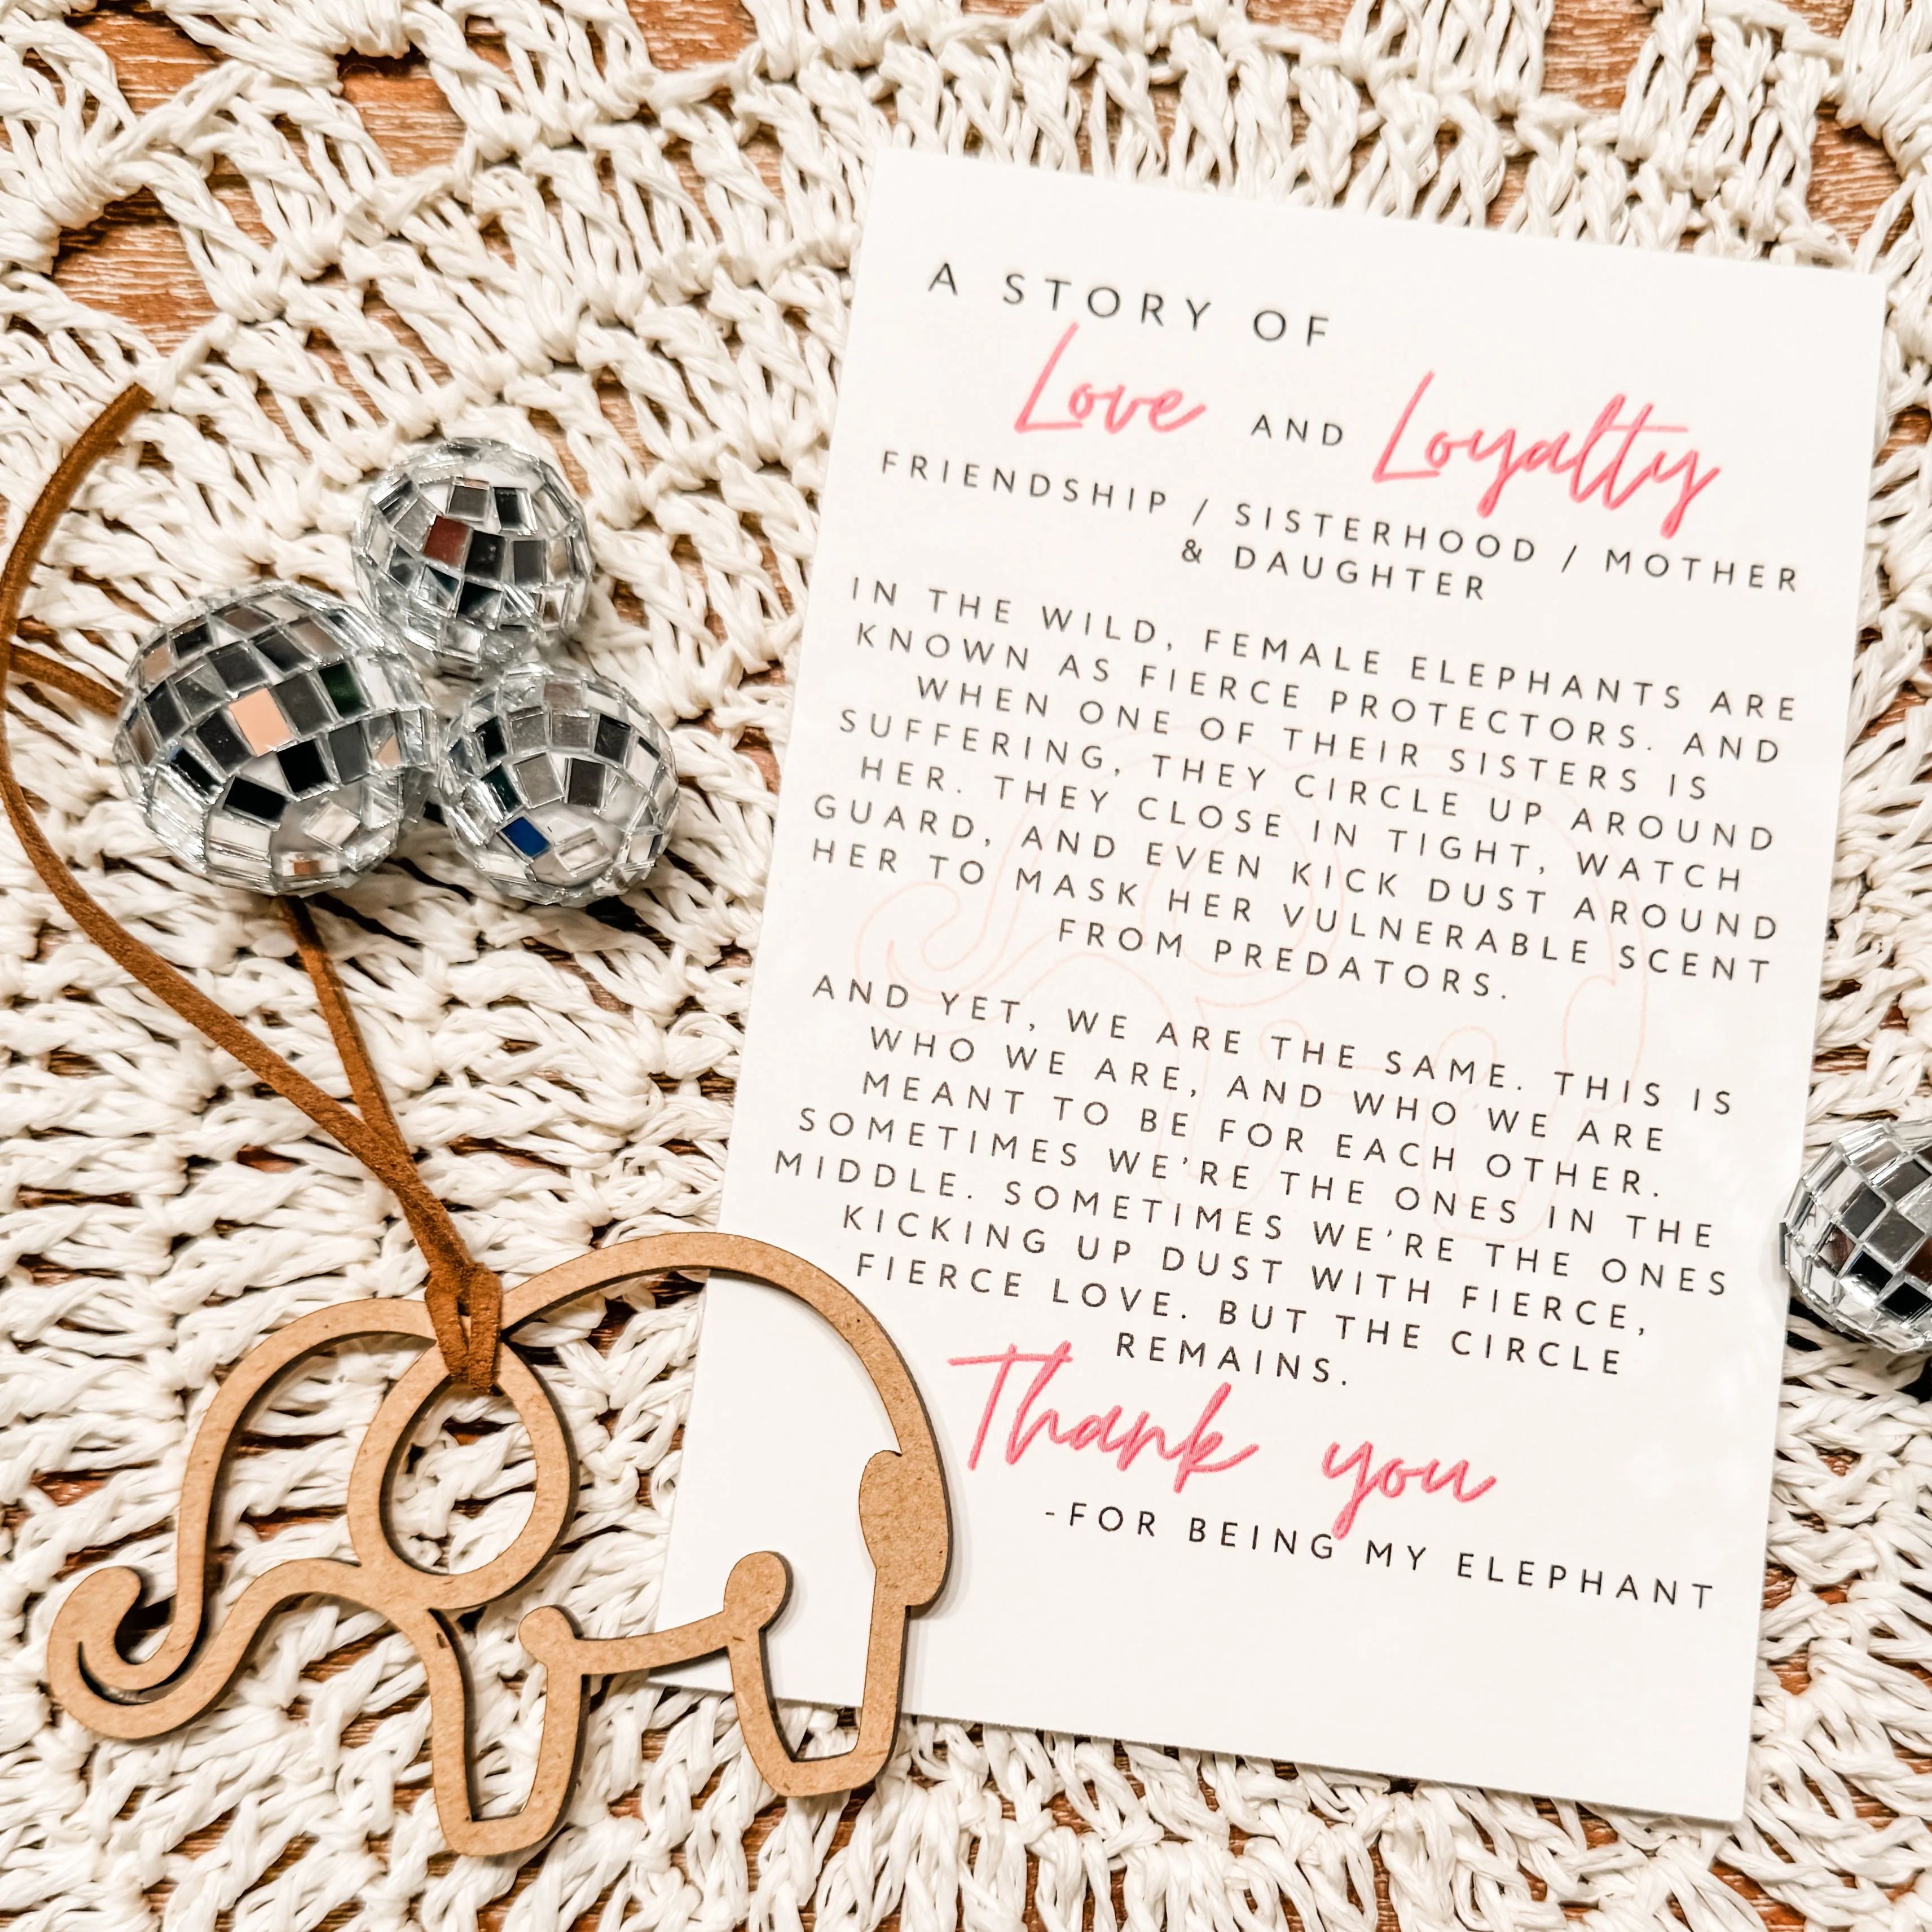 A STORY OF
Love AND Loyalty
FRIENDSHIP / SISTERHOOD / MOTHER
& DAUGHTER
IN THE WILD, FEMALE ELEPHANTS ARE
KNOWN AS FIERCE PROTECTORS. AND
WHEN ONE OF THEIR SISTERS IS
SUFFERING, THEY CIRCLE UP AROUND
HER. THEY CLOSE IN TIGHT, WATCH
GUARD, AND EVEN KICK DUST AROUND
HER TO MASK HER VULNERABLE SCENT
FROM PREDATORS.
AND YET, WE ARE THE SAME. THIS IS
WHO WE ARE, AND WHO WE ARE
MEANT TO BE FOR EACH OTHER.
SOMETIMES WE'RE THE ONES IN THE
MIDDLE. SOMETIMES WE'RE THE ONES
KICKING UP DUST WITH FIERCE,
FIERCE LOVE. BUT THE CIRCLE
REMAINS.
Thank you
-FOR BEING MY ELEPHANT